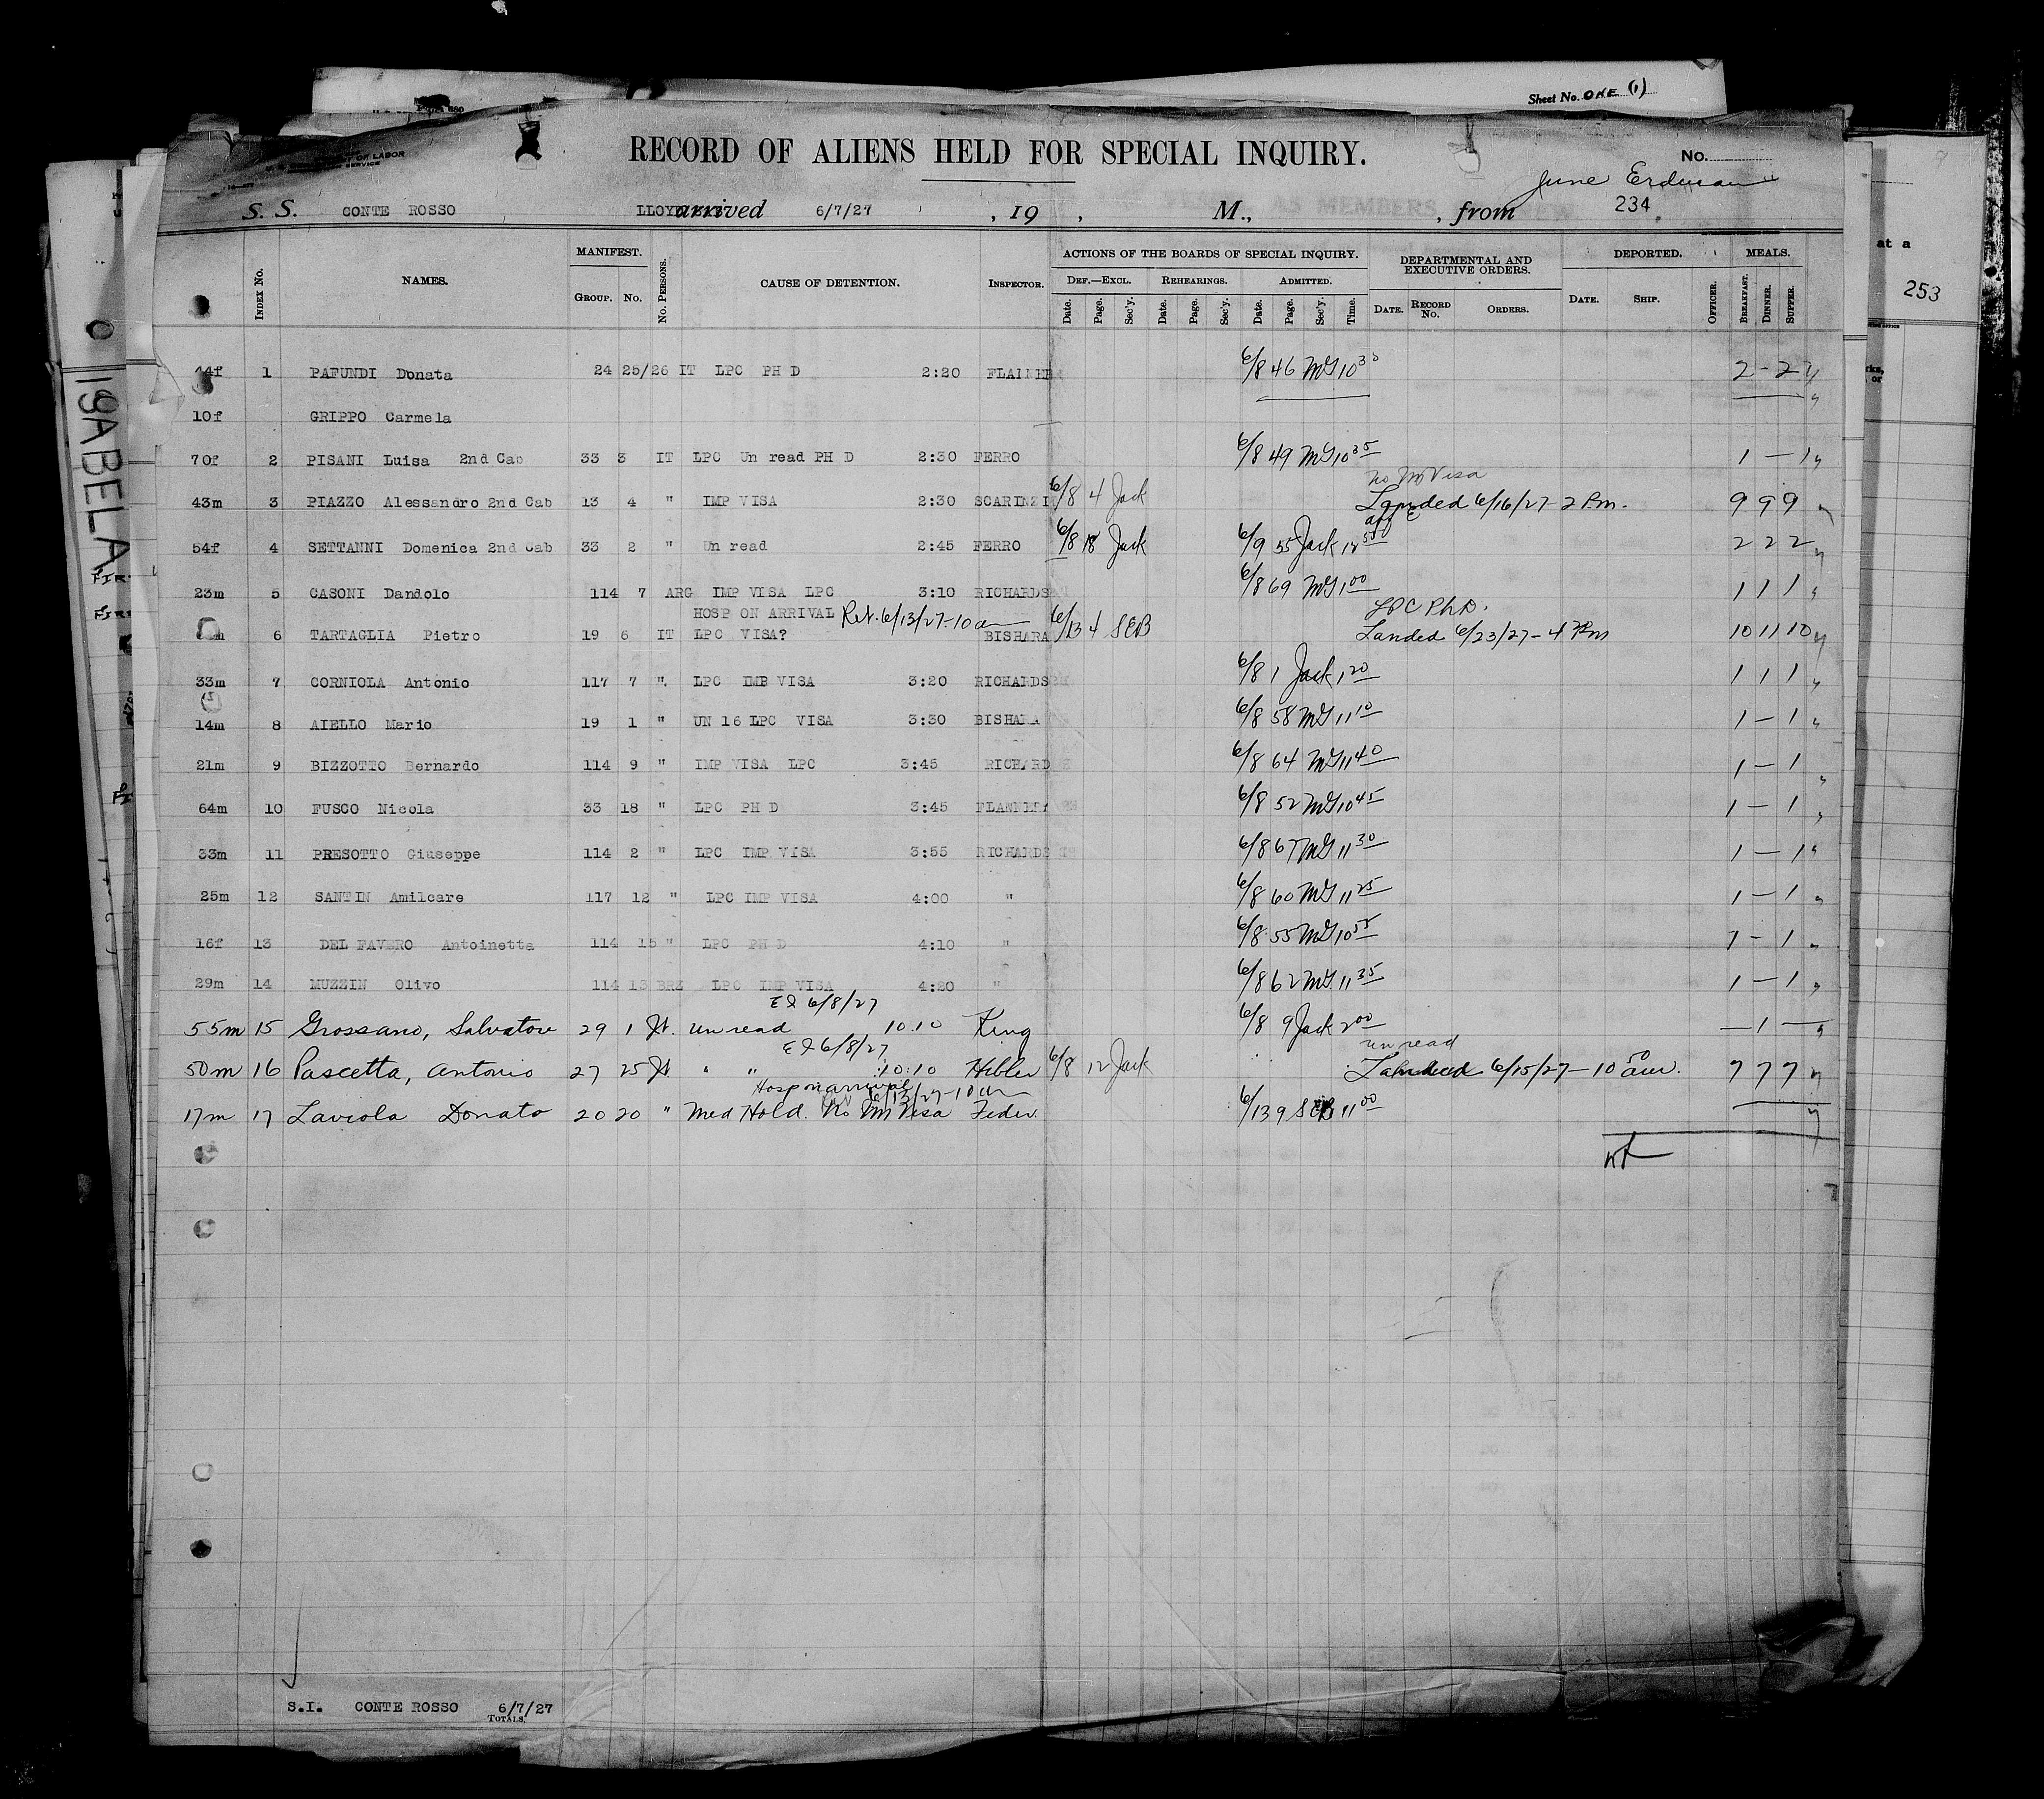 Sheet No. ONE (1)
OF LABOR
SERVICE
RECORD OF ALIENS HELD FOR SPECIAL INQUIRY.
No.
June
S. S. CONTE ROSSO LLOYD arrived 6/7/27 , 19 , M., , from 234
at a
253
ISABELA
INDEX No. NAMES. MANIFEST. GROUP. No. No. PERSONS. CAUSE OF DETENTION. INSPECTOR. ACTIONS OF THE BOARDS OF SPECIAL INQUIRY. DEPARTMENTAL AND EXECUTIVE ORDERS. DEPORTED. MEALS.
DEF.—EXCL. REHEARINGS. ADMITTED.
Date. Page. Sec'y. Date. Page. Sec'y. Date. Page. Sec'y. Time. DATE. RECORD No. ORDERS. DATE. SHIP. OFFICER. BREAKFAST. DINNER. SUPPER.
44f 1 PAFUNDI Donata 24 25/26 IT LPC PH D 2:20 6/8 46 MG 10 30 2 - 2
10f GRIPPO Carmela
70f 2 PISANI Luisa 2nd Cab 33 3 IT LPC Un read PH D 2:30 FERRO 6/8 49 MG 10 35 1 - 1
no Im Visa
43m 3 PIAZZO Alessandro 2nd Cab 13 4 " IMP VISA 2:30 SCARINZI 6/8 4 Jack Landed 6/16/27 - 2 P.m. 9 9 9
54f 4 SETTANNI Domenica 2nd Cab 33 2 " Un read 2:45 FERRO 6/8 18 Jack 6/9 55 Jack 2 2 2
23m 5 CASONI Dandolo 114 7 ARG IMP VISA LPC 3:10 RICHARDS 6/8 69 MG 1 00 1 1 1
HOSP ON ARRIVAL Ret. 6/13/27-10am LPC Ph D.
6 TARTAGLIA Pietro 19 6 IT LPC VISA? BISHARA 6/13 4 SEB Landed 6/23/27 - 4 Pm 10 11 10
33m 7 CORNIOLA Antonio 117 7 " LPC IMB VISA 3:20 RICHARDS 6/8 1 Jack 1 20 1 1 1
14m 8 AIELLO Mario 19 1 " UN 16 LPC VISA 3:30 BISHARA 6/8 58 MG 11 10 1 - 1
21m 9 BIZZOTTO Bernardo 114 9 " IMP VISA LPC 3:45 RICHARD 6/8 64 MG 11 40 1 - 1
64m 10 FUSCO Nicola 33 18 " LPC PH D 3:45 FLANNERY 6/8 52 MG 10 45 1 - 1
33m 11 PRESOTTO Giuseppe 114 2 " LPC IMP VISA 3:55 RICHARDS 6/8 67 MG 11 30 1 - 1
25m 12 SANTIN Amilcare 117 12 " LPC IMP VISA 4:00 " 6/8 60 MG 11 25 1 - 1
16f 13 DEL FAVERO Antoinetta 114 15 " LPC PH D 4:10 " 6/8 55 MG 10 55 1 - 1
29m 14 MUZZIN Olivo 114 13 BRZ LPC IMP VISA 4:20 " 6/8 62 MG 11 35 1 - 1
EI 6/8/27
55m 15 Grossano, Salvatore 29 1 It. un read 10.10 King 6/8 9 Jack 2 00 - 1 -
EI 6/8/27 un read
50m 16 Pascetta, Antonio 27 25 It. " " 10:10 Hibler 6/8 12 Jack Landed 6/15/27 - 10 50 am. 7 7 7
Hosp on arrival 6/13/27-10 am
17m 17 Laviola Donato 20 20 " Med Hold. No Im Visa Feder 6/13 9 SEB 11 00
S.I. CONTE ROSSO 6/7/27
TOTALS.